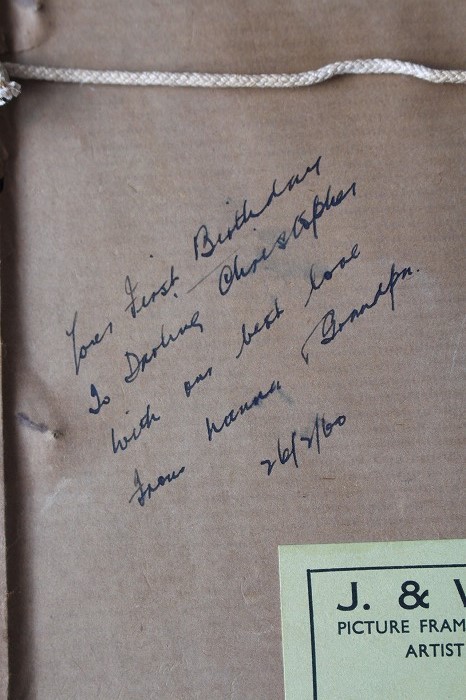 Your First Birthday
To Darling Christopher
With our best love
From Nanna & Grandpa.
26/2/60
J. &
PICTURE FRAM
ARTIST